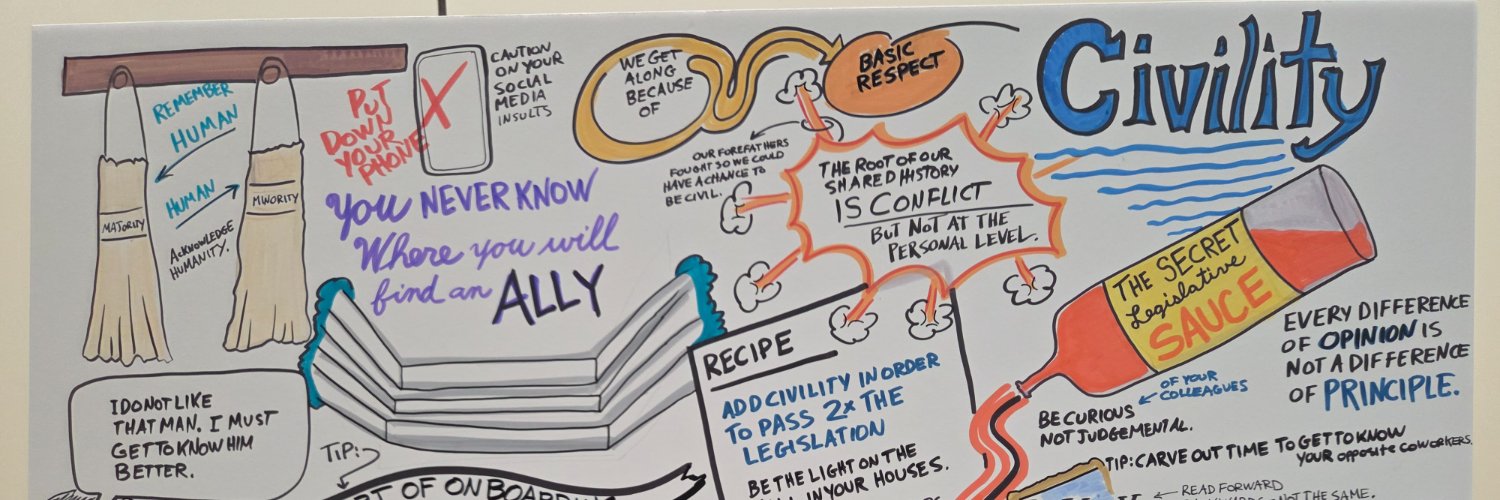 REMEMBER
HUMAN
HUMAN
ACKNOWLEDGE
HUMANITY.
MAJORITY
MINORITY
PUT
DOWN
YOUR
PHONE
X
CAUTION
ON YOUR
SOCIAL
MEDIA
INSULTS
WE GET
ALONG
BECAUSE
OF
BASIC
RESPECT
Civility
OUR FOREFATHERS
FOUGHT SO WE COULD
HAVE A CHANCE TO
BE CIVIL.
THE ROOT OF OUR
SHARED HISTORY
IS CONFLICT
BUT NOT AT THE
PERSONAL LEVEL.
YOU NEVER KNOW
Where you will
find an ALLY
THE SECRET
Legislative
SAUCE
OF YOUR
COLLEAGUES
EVERY DIFFERENCE
OF OPINION IS
NOT A DIFFERENCE
OF PRINCIPLE.
I DO NOT LIKE
THAT MAN. I MUST
GET TO KNOW HIM
BETTER.
TIP:
OF ONBOARDING
RECIPE
ADD CIVILITY IN ORDER
TO PASS 2x THE
LEGISLATION
BE THE LIGHT ON THE
IN YOUR HOUSES.
BE CURIOUS
NOT JUDGEMENTAL.
TIP: CARVE OUT TIME TO GET TO KNOW
YOUR opposite COWORKERS.
READ FORWARD
NOT THE SAME.